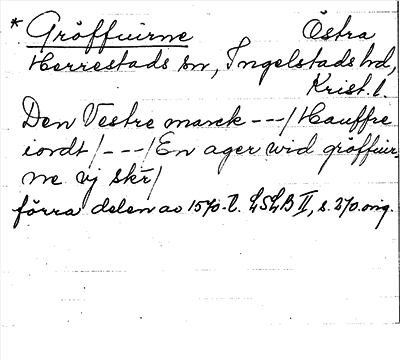 * Gröffuirne Östra
Herrestads sn, Ingelstads hd,
Krist. l.
Den Vestre marck ---/ Hauffre
iordt / ---/ En ager wid gröffuir-
ne vj skr/
förra delen av 1570-t. LSLB II, s. 270. orig.